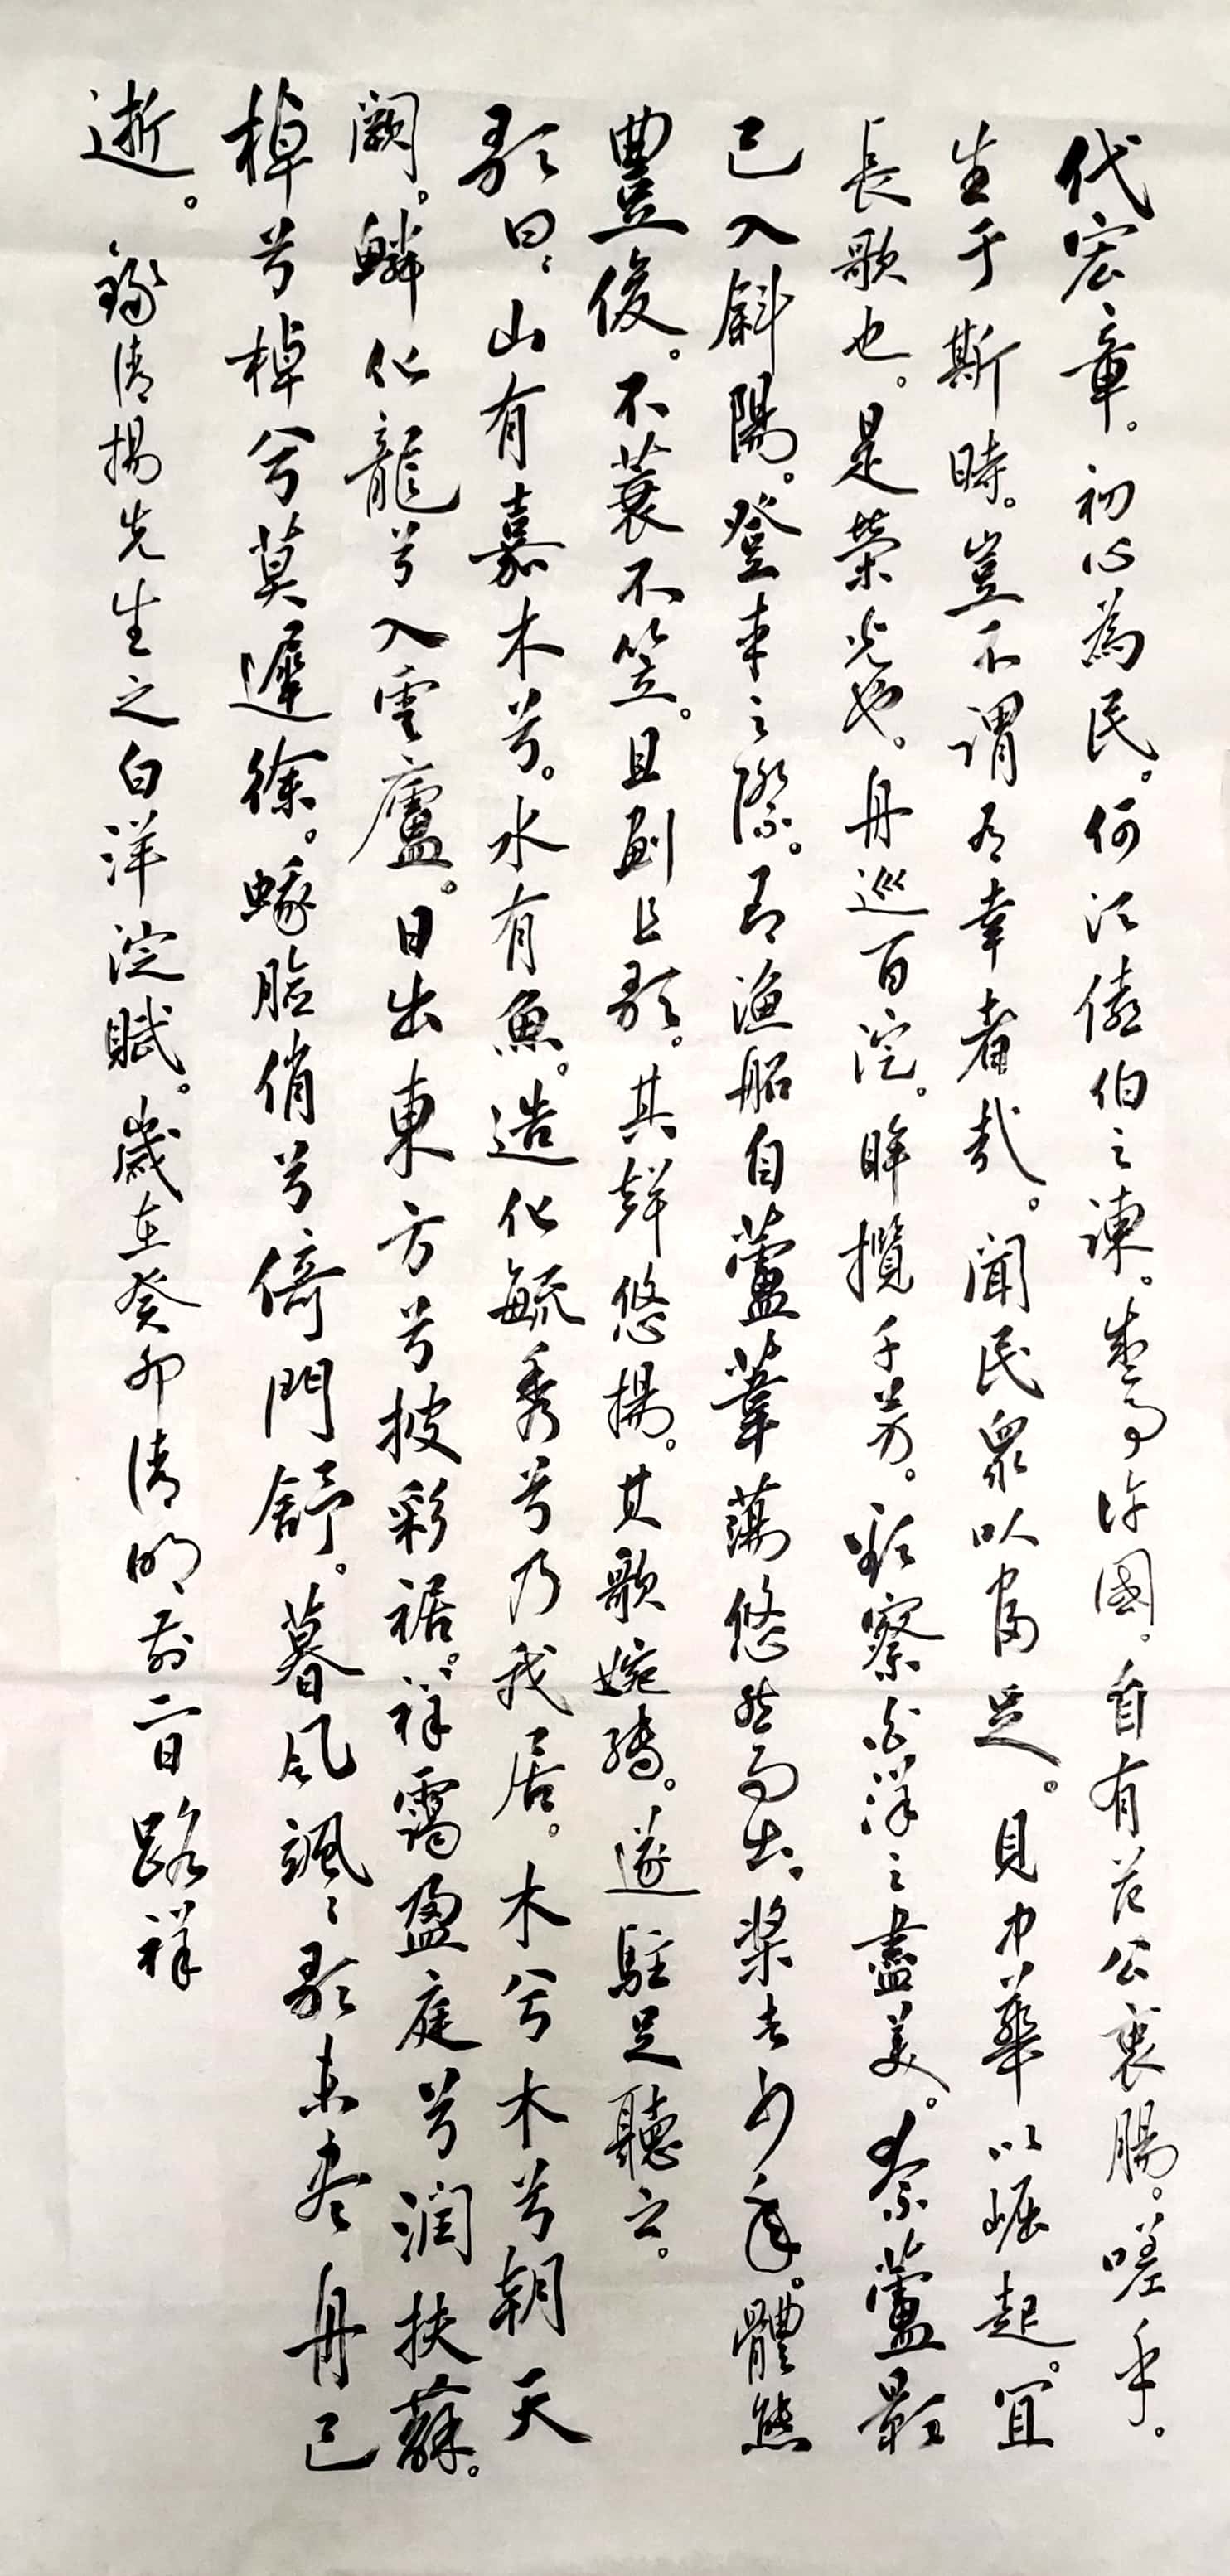 代宏章。初心為民。何须儘伯之諫。盡有許國。自有范公衷腸。嗟乎。
生于斯時。豈不謂有幸者哉。聞民衆以富足。見中華以崛起。宜
長歌也。是榮光也。舟巡百淀。眸攬千芳。欲察白洋之盡美。奈蘆影
已入斜陽。登車之際。有漁船自蘆葦蕩悠然而出。槳者少年。體態
豐俊。不蓑不笠。且劃且歌。其聲悠揚。其歌婉轉。遂駐足聽之。
歌曰、山有嘉木兮。水有魚。造化毓秀兮乃我居。木兮木兮朝天
闕。鱗化龍兮入雲廬。日出東方兮披彩裾。祥靄盈庭兮潤扶蘇。
棹兮棹兮莫遲徐。蛾臉俏兮倚門舒。暮風颯颯歌未盡舟已
逝。 錄清揚先生之白洋淀賦。歲在癸卯清明前二日 路祥